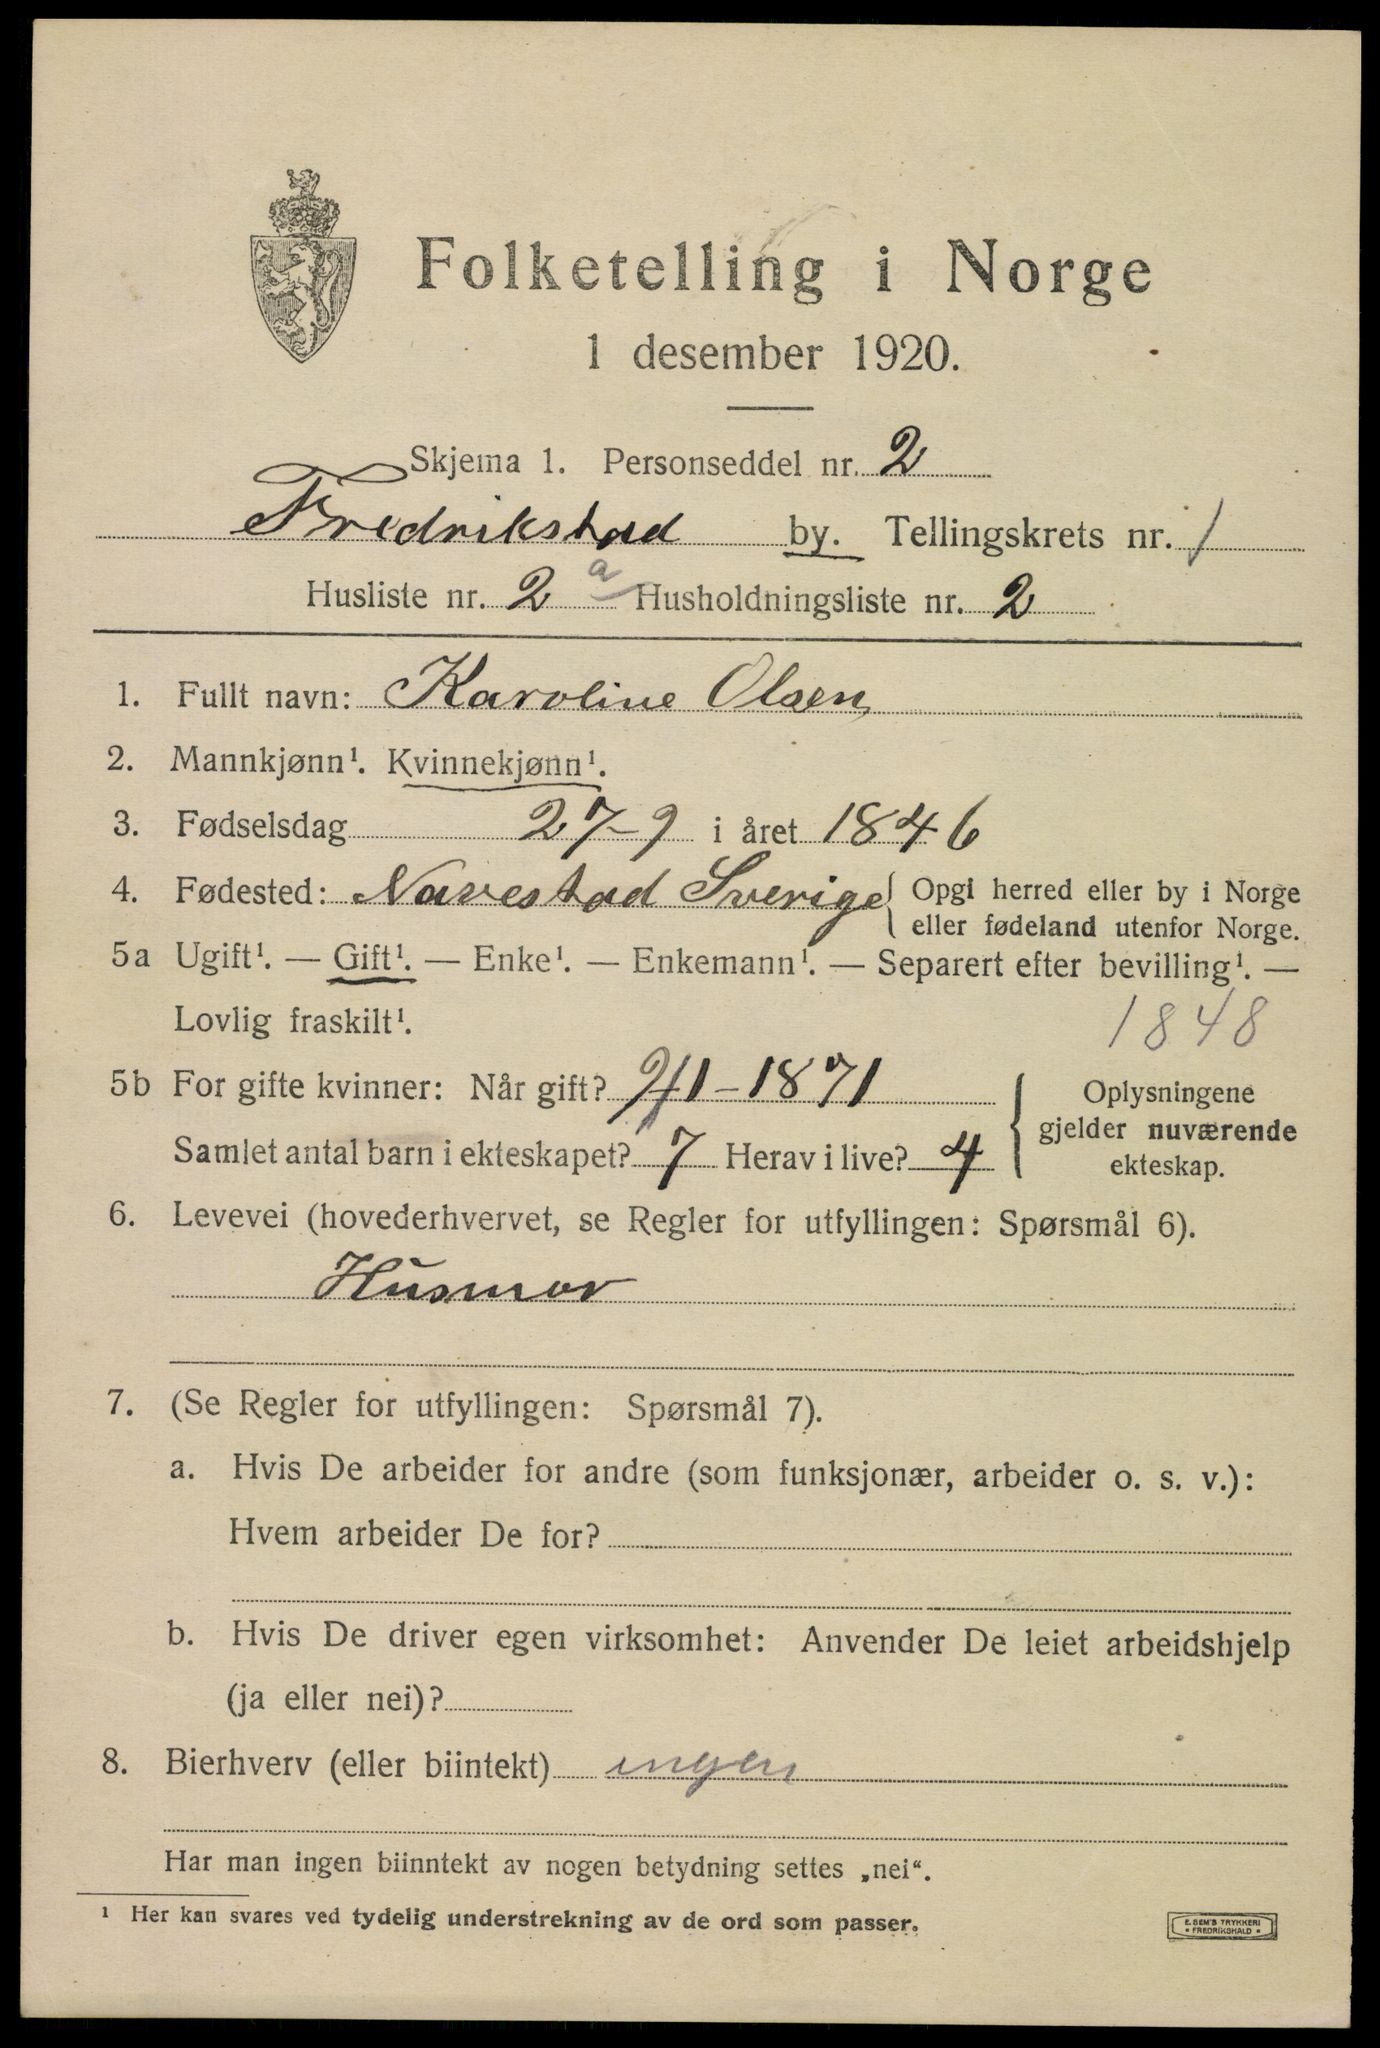 Folketelling i Norge
1 desember 1920.
Skjema 1. Personseddel nr. 2
Fredrikstad by. Tellingskrets nr. 1
Husliste nr. 2 a Husholdningsliste nr. 2
1. Fullt navn: Karoline Olsen
2. Mannkjønn¹. Kvinnekjønn¹.
3. Fødselsdag 27-9 i året 1846
4. Fødested: Navestad Sverige { Opgi herred eller by i Norge
eller fødeland utenfor Norge.
5a Ugift¹. — Gift¹. — Enke¹. — Enkemann¹. — Separert efter bevilling¹. —
Lovlig fraskilt¹. 1848
5b For gifte kvinner: Når gift? 9/1-1871 { Oplysningene
gjelder nuværende
ekteskap.
Samlet antal barn i ekteskapet? 7 Herav i live? 4
6. Levevei (hovederhvervet, se Regler for utfyllingen: Spørsmål 6).
Husmor
7. (Se Regler for utfyllingen: Spørsmål 7).
a. Hvis De arbeider for andre (som funksjonær, arbeider o. s. v.):
Hvem arbeider De for?
b. Hvis De driver egen virksomhet: Anvender De leiet arbeidshjelp
(ja eller nei)?
8. Bierhverv (eller biintekt) ingen
Har man ingen biinntekt av nogen betydning settes „nei“.
¹ Her kan svares ved tydelig understrekning av de ord som passer.
E. SEM'S TRYKKERI
• FREDRIKSHALD •